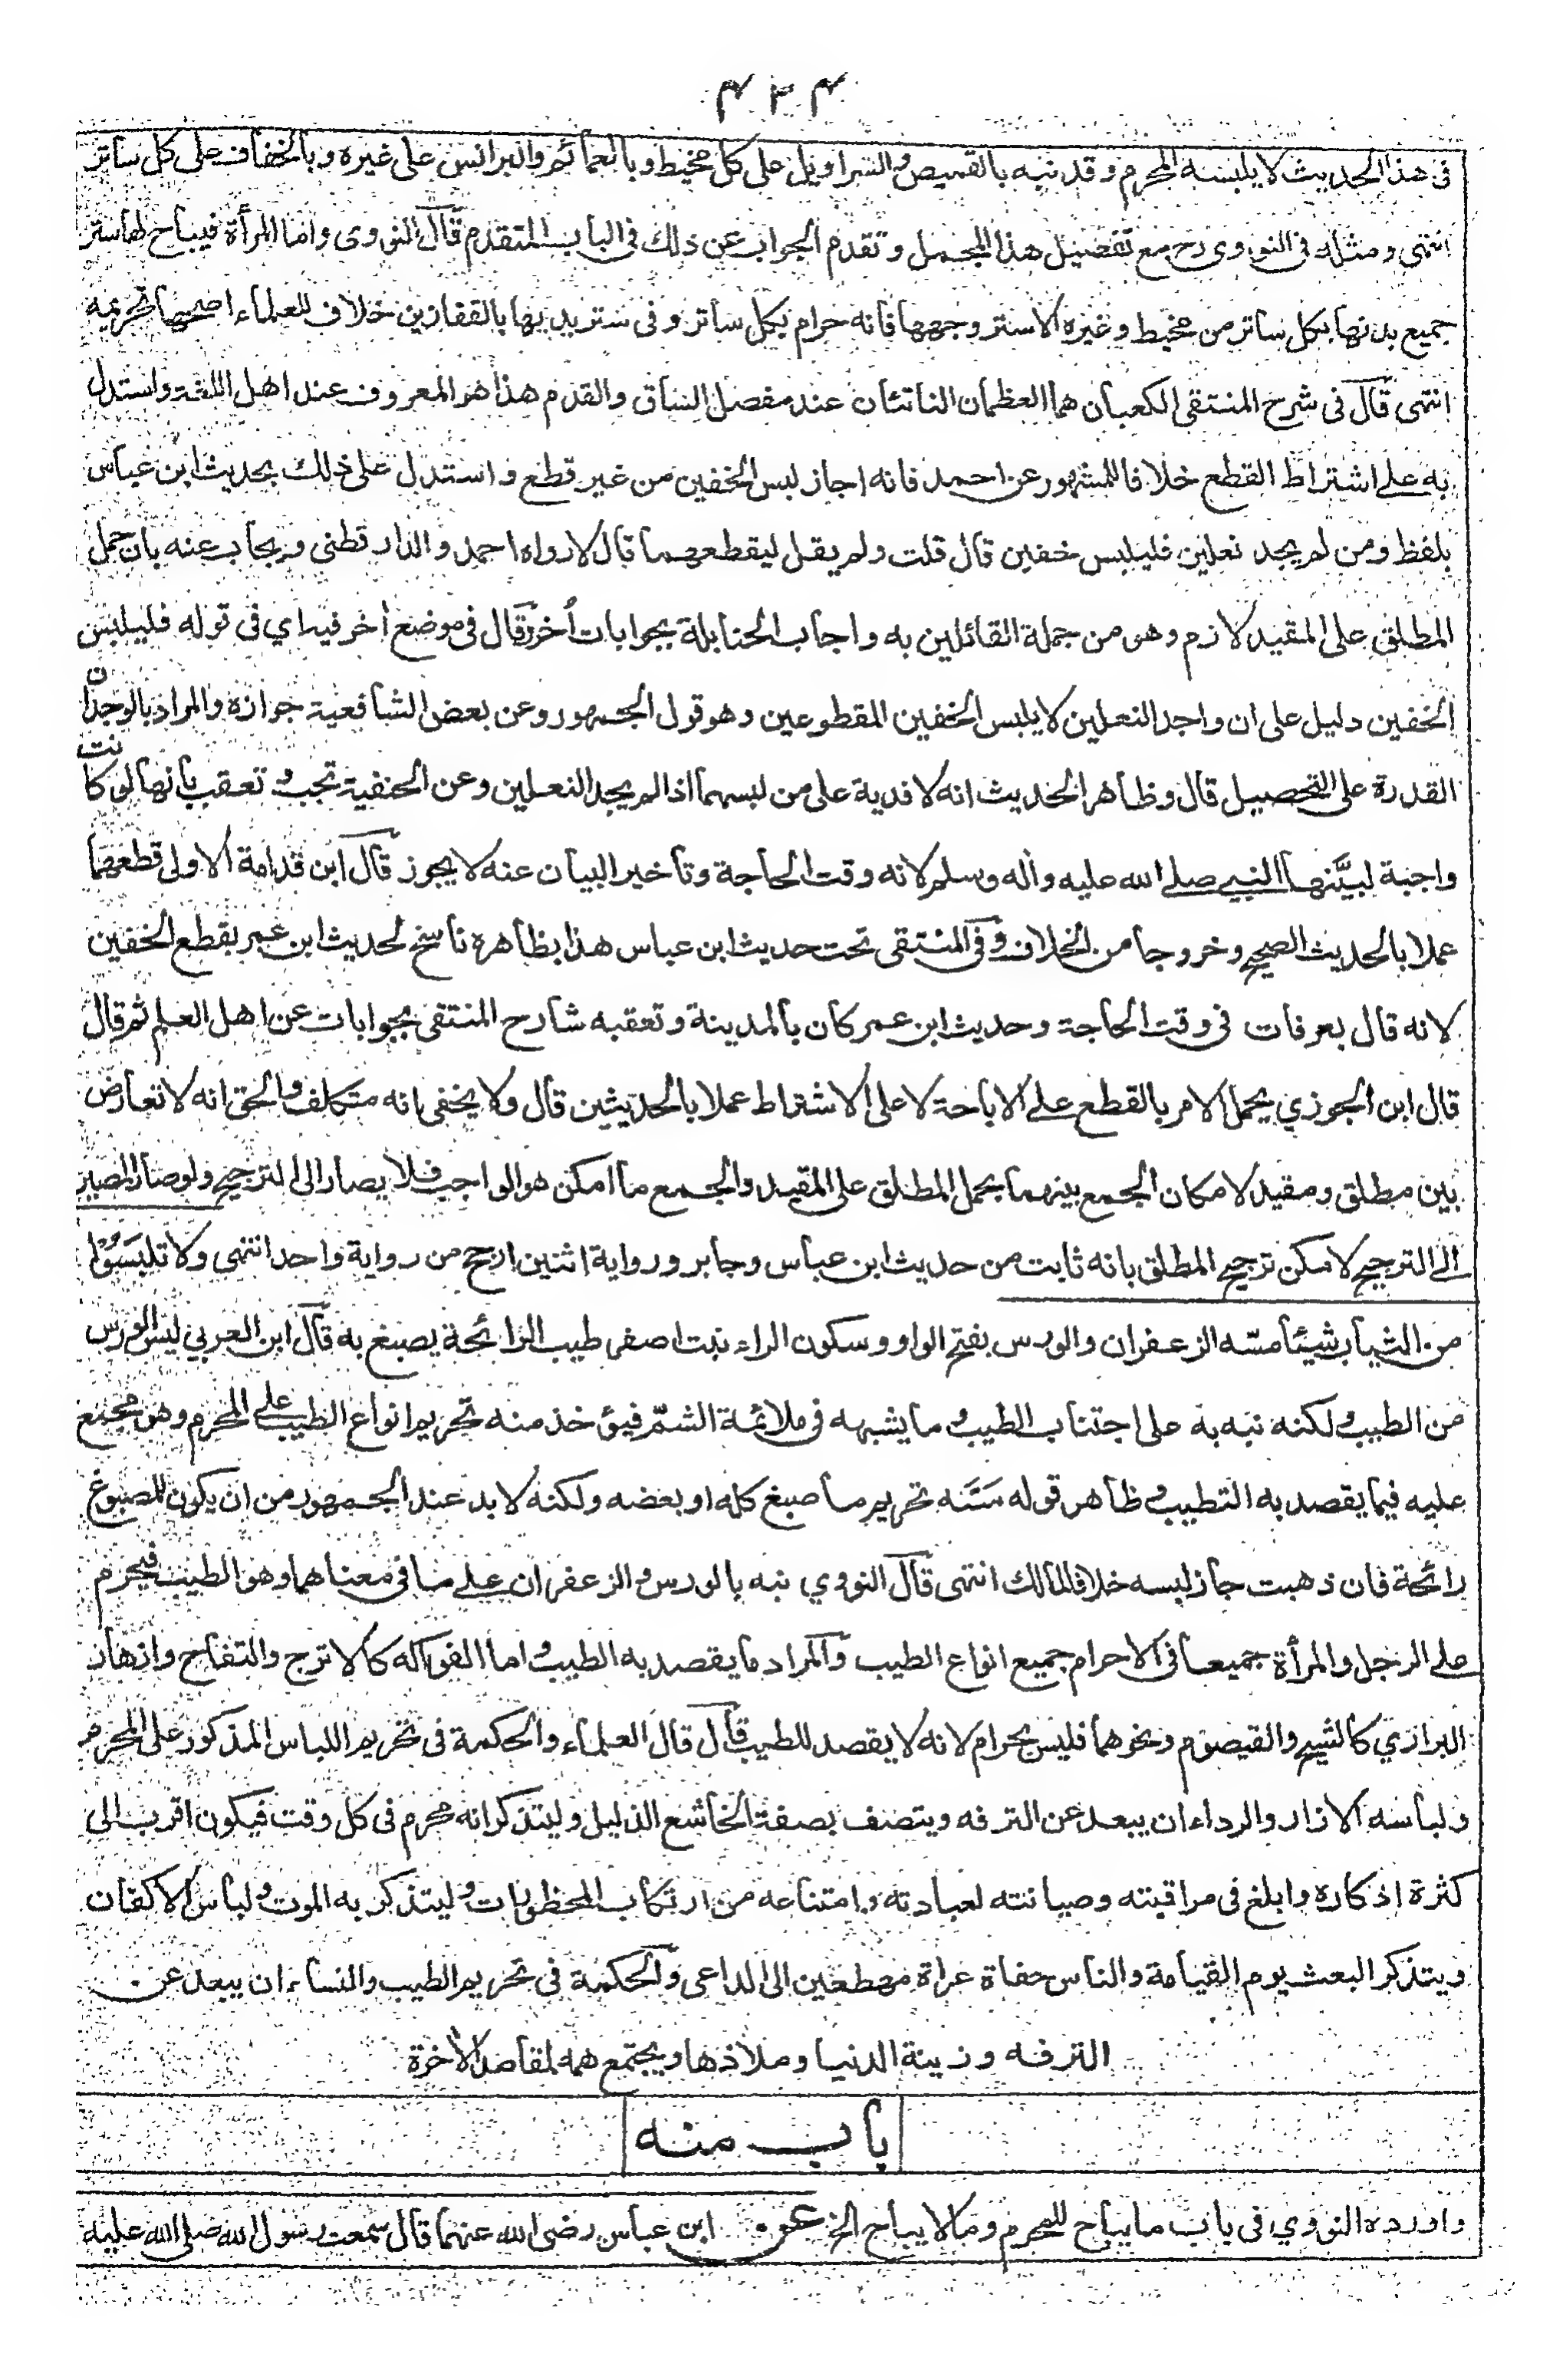 ۴۲۴
فى هذا الحديث لا يلبسه المحرم وقد نبه بالقميص والسراويل على كل مخيط وبالعمائم والبرانس على غيره وبالخفاف على كل ساتر
انتهى ومثله فى النووى رح مع تفضيل هذا المجمل وتقدم الجواب عن ذلك فى الباب المتقدم قال النووى واما المرأة فيباح لها ستر
جميع بدنها بكل ساتر من مخيط وغيره الا ستر وجهها فانه حرام بكل ساتر وفى ستر يديها بالقفازين خلاف للعلماء اصحها تحريمه
انتهى قال فى شرح المنتقى الكعبان هما العظمان الناتئان عند مفصل الساق والقدم هذا هو المعروف عند اهل اللغة واستدل
به على اشتراط القطع خلافا للمشهور عن احمد فانه اجاز لبس الخفين من غير قطع واستدل على ذلك بحديث ابن عباس
بلفظ ومن لم يجد نعلين فليلبس خفين قال قلت ولم يقل ليقطعهما قال لا رواه احمد والدارقطنى ويجاب عنه بان حمل
المطلق على المقيد لازم وهو من جملة القائلين به واجاب الحنابلة بجوابات أخر قال فى موضع اخر فيه اي فى قوله فليلبس
الخفين دليل على ان واجد النعلين لا يلبس الخفين المقطوعين وهو قول الجمهور وعن بعض الشافعية جوازه والمراد بالوجدان
القدرة على التحصيل قال وظاهر الحديث انه لا فدية على من لبسهما اذا لم يجد النعلين وعن الحنفية تجب وتعقب بانها لو كانت
واجبة لبيَّنها النبي صلى الله عليه واله وسلم لانه وقت الحاجة وتأخير البيان عنه لا يجوز قال ابن قدامة الاولى قطعهما
عملا بالحديث الصحيح وخروجا من الخلاف وفى المنتقى تحت حديث ابن عباس هذا بظاهره ناسخ لحديث ابن عمر بقطع الخفين
لانه قال بعرفات فى وقت الحاجة وحديث ابن عمر كان بالمدينة وتعقبه شارح المنتقى بجوابات عن اهل العلم ثم قال
قال ابن الجوزي يحمل الامر بالقطع على الاباحة لا على الاشتراط عملا بالحديثين قال ولا يخفى انه متكلف والحق انه لا تعارض
بين مطلق ومقيد لامكان الجمع بينهما بحمل المطلق على المقيد والجمع ما امكن هو الواجب فلا يصار الى الترجيح ولو صار المصير
الى الترجيح لامكن ترجيح المطلق بانه ثابت من حديث ابن عباس وجابر ورواية اثنين ارجح من رواية واحد انتهى ولا تلبَسُوْا
من الثياب شيئا مسّه الزعفران والورس بفتح الواو وسكون الراء نبت اصفر طيب الرائحة يصبغ به قال ابن العربي ليس الورس
من الطيب ولكنه نبه به على اجتناب الطيب وما يشبهه فى ملائمة الشمّ فيؤخذ منه تحريم انواع الطيب على المحرم وهو مجمع
عليه فيما يقصد به التطيب وظاهر قوله مَسَّه تحريم ما صبغ كله او بعضه ولكنه لا بد عند الجمهور من ان يكون للمصبوغ
رائحة فان ذهبت جاز لبسه خلافا لمالك انتهى قال النووي نبه بالورس والزعفران على ما فى معناهما وهو الطيب فيحرم
على الرجل والمرأة جميعا فى الاحرام جميع انواع الطيب والمراد ما يقصد به الطيب واما الفواكه كالاترج والتفاح وازهار
البراري كالشيح والقيصوم ونحوهما فليس بحرام لانه لا يقصد للطيب قال قال العلماء والحكمة فى تحريم اللباس المذكور على المحرم
ولباسه الازار والرداء ان يبعد عن الترفه ويتصف بصفة الخاشع الذليل وليتذكر انه محرم فى كل وقت فيكون اقرب الى
كثرة اذكاره وابلغ فى مراقبته وصيانته لعبادته وامتناعه من ارتكاب المحظورات وليتذكر به الموت ولباس الاكفان
ويتذكر البعث يوم القيامة والناس حفاة عراة مهطعين الى الداعى والحكمة فى تحريم الطيب والنساء ان يبعد عن
الترفه وزينة الدنيا وملاذها ويجتمع همه لمقاصد الاخرة
باب منه
واورده النووي فى باب ما يباح للمحرم وما لا يباح الخ عن ابن عباس رضى الله عنهما قال سمعت رسول الله صلى الله عليه